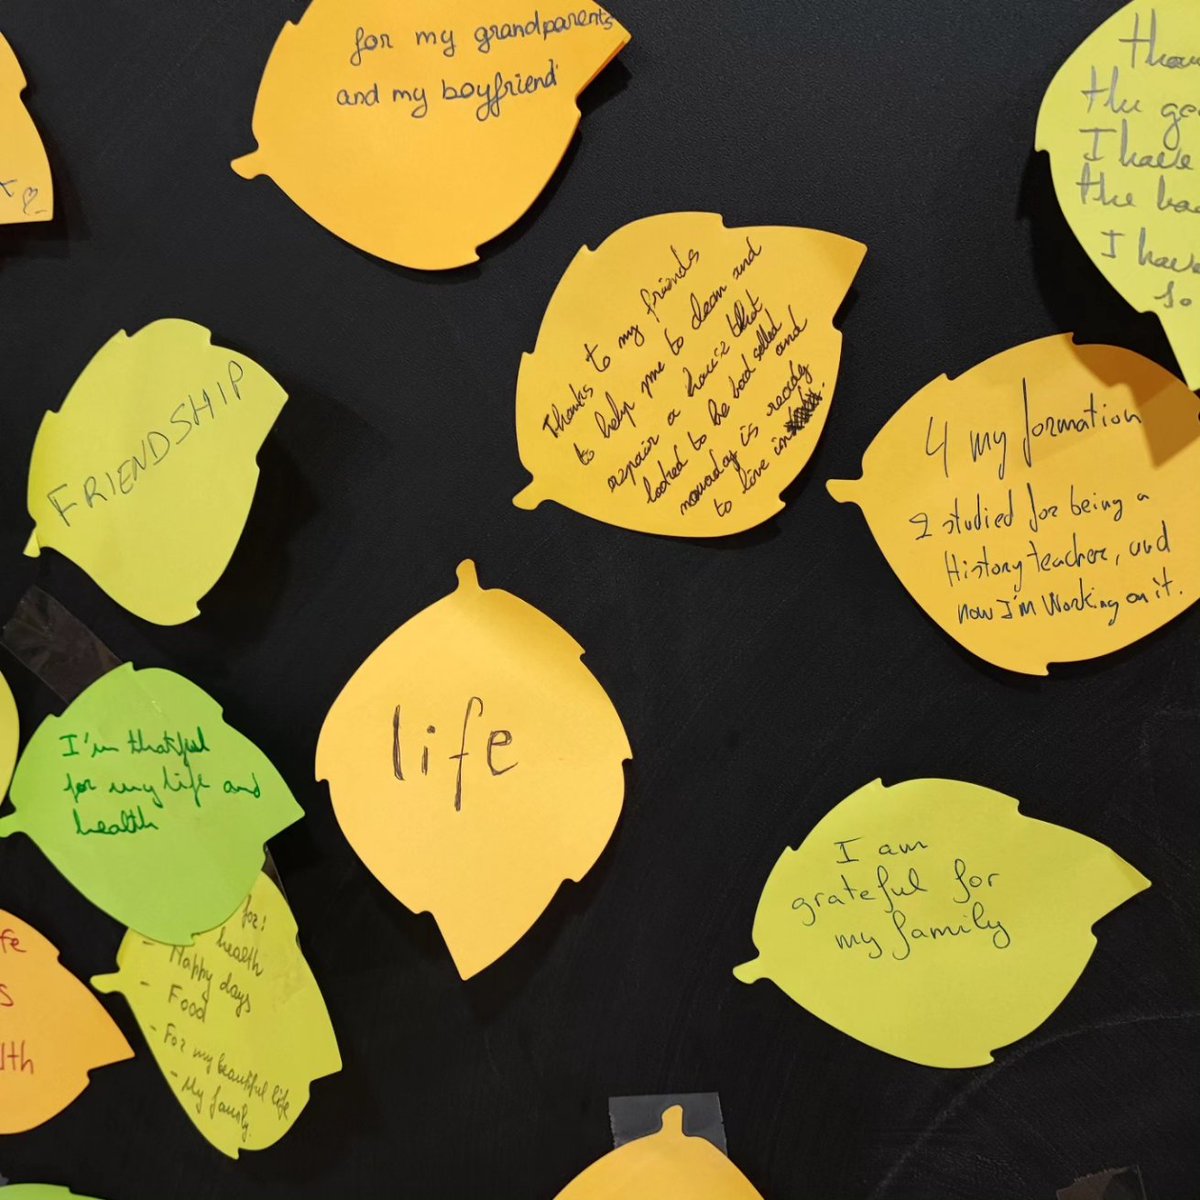 for my grandparents
and my boyfriend
than
the
I have
the
I have
so
Thanks to my friends
to help me to clean and
repair a hause that
looked to be bad selled
nowaday is ready and
to live in
4 my formation
I studied for being a
History teacher, and
now I'm working on it.
FRIENDSHIP
life
I'm thatful
for my life and
health
I am
grateful for
my family
for:
- health
Happy days
- Food
- For my beautiful life
- My family.
fe
s
lth